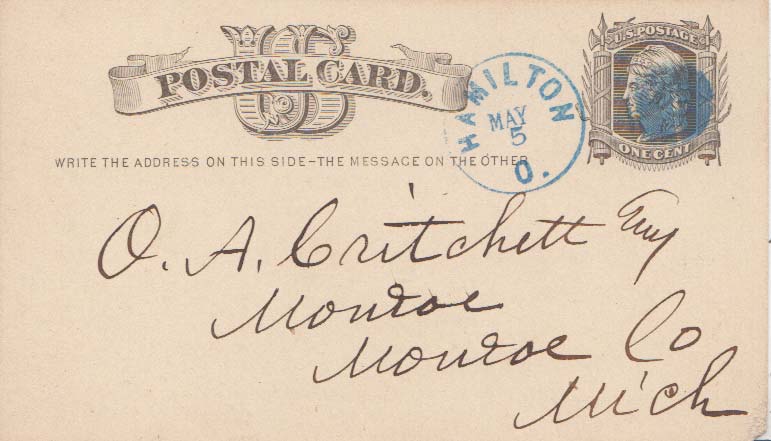 US
POSTAL CARD.
U.S. POSTAGE
ONE CENT
HAMILTON
MAY
5
O.
WRITE THE ADDRESS ON THIS SIDE-THE MESSAGE ON THE OTHER
O. A. Critchett Esq
Monroe
Monroe Co
Mich